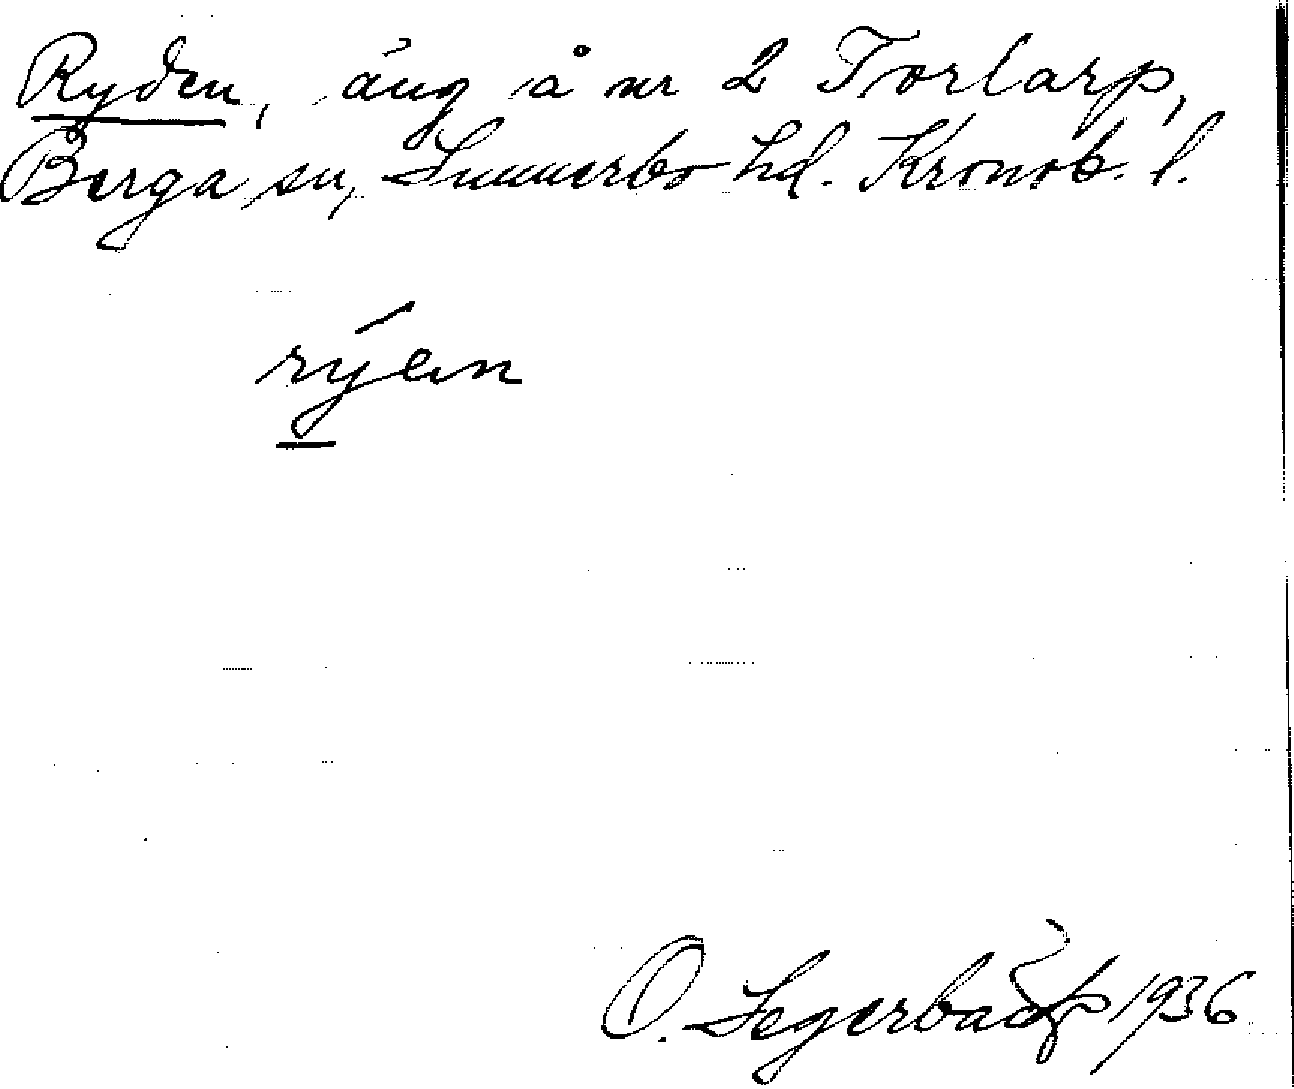 Ryden, äng å nr 2 Torlarp,
Berga sn, Sunnerbo hd. Kronob. l.
rýen
O. Segerbäck 1936